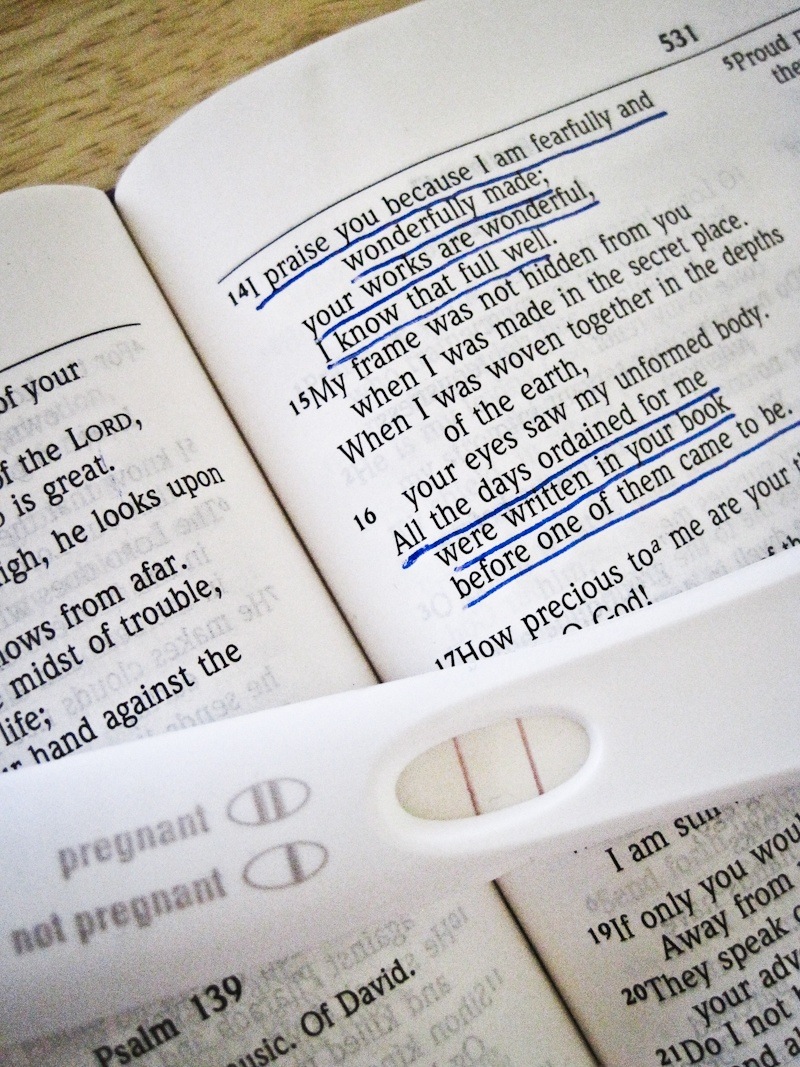 531
14I praise you because I am fearfully and
wonderfully made;
your works are wonderful,
I know that full well.
15My frame was not hidden from you
when I was made in the secret place.
When I was woven together in the depths
of the earth,
16 your eyes saw my unformed body.
All the days ordained for me
were written in your book
before one of them came to be.
17How precious toa me are your
O God!
5Proud
of your
of the LORD,
is great.
he looks upon
from afar.
midst of trouble,
life;
hand against the
pregnant
not pregnant
Psalm 139
Of David.
I am still
19If only you
Away from
20They speak
your
21Do I not